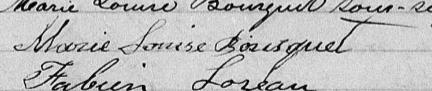 Marie Louise Bousquet sous-si
Marie Louise Bousquet
Fabien Loreau